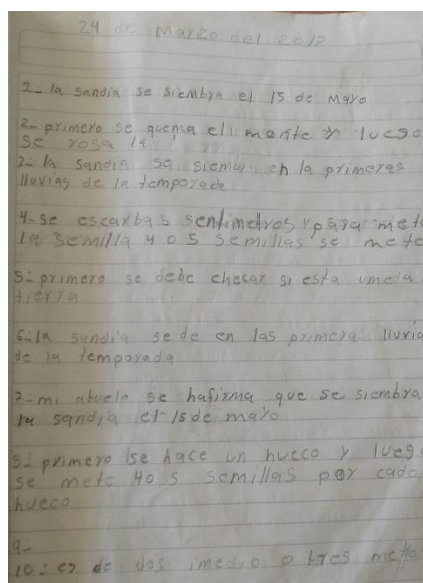 29 de Marzo del 2017
2- la sandia se siembra el 15 de Mayo
2- primero se quema el monte y luego
se rosa la
3- la sandia se siem en la primeras
lluvias de la temporada
4- se escarba 5 sentimetros y para met
la semilla 4 o 5 semillas se mete
5- primero se debe checar si esta umeda
tierra
6- la sandia se de en las primera lluvia
de la temporada
7- mi abuelo se hafirma que se siembra
la sandia el 15 de mayo
8- primero se hace un hueco y lueg
se mete 4 o 5 semillas por cado
hueco
9-
10- es de dos imedio o tres metro